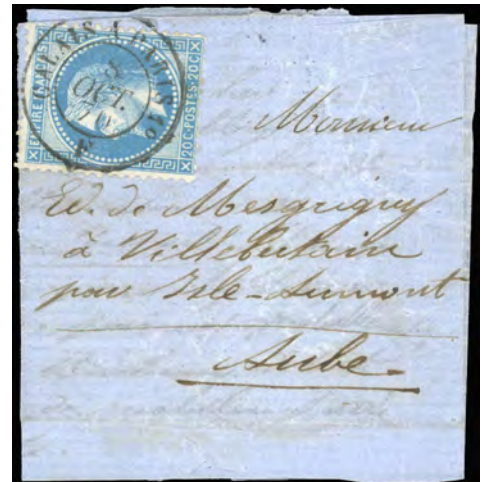 CALAIS A PARIS 1º
8
OCT.
70
EMPIRE FRANCAIS
20C·POSTES·20C
Monsieur
Ed. de Mesgrigny
à Villebertain
par Isle-Aumont
Aube.